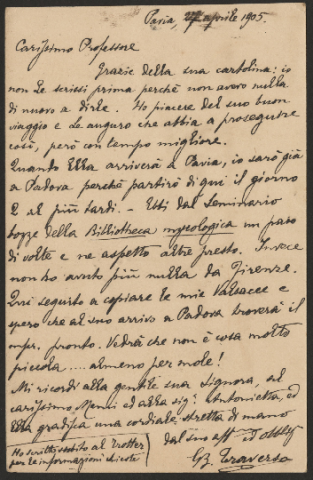 Pavia, aprile 1905.
Carissimo Professore
Grazie della sua cartolina: io
non Le scrissi prima perchè non avevo nulla
di nuovo a dirle. Ho piacere del suo buon
viaggio e Le auguro che abbia a proseguire
così, però con tempo migliore.
Quando Ella arriverà a Pavia, io sarò già
a Padova perchè partirò di qui il giorno
2 al più tardi. - Ebbi dal Seminario
bozze della Bibliotheca mycologica un paio
di volte e ne aspetto altre presto. Invece
non ho avuto più nulla da Firenze.
Qui seguito a copiare le mie Valsacee e
spero che al suo arrivo a Padova troverà il
mpr. pronto. Vedrà che non è cosa molto
piccola.... almeno per mole!
Mi ricordi alla gentile sua Signora, al
carissimo Menni ed alla sig.a Antonietta, ed
Ella gradisca una cordiale stretta di mano
dal suo aff. ed obblg
GB Traverso
Ho scritto subito al Trotter
per le informazioni chieste